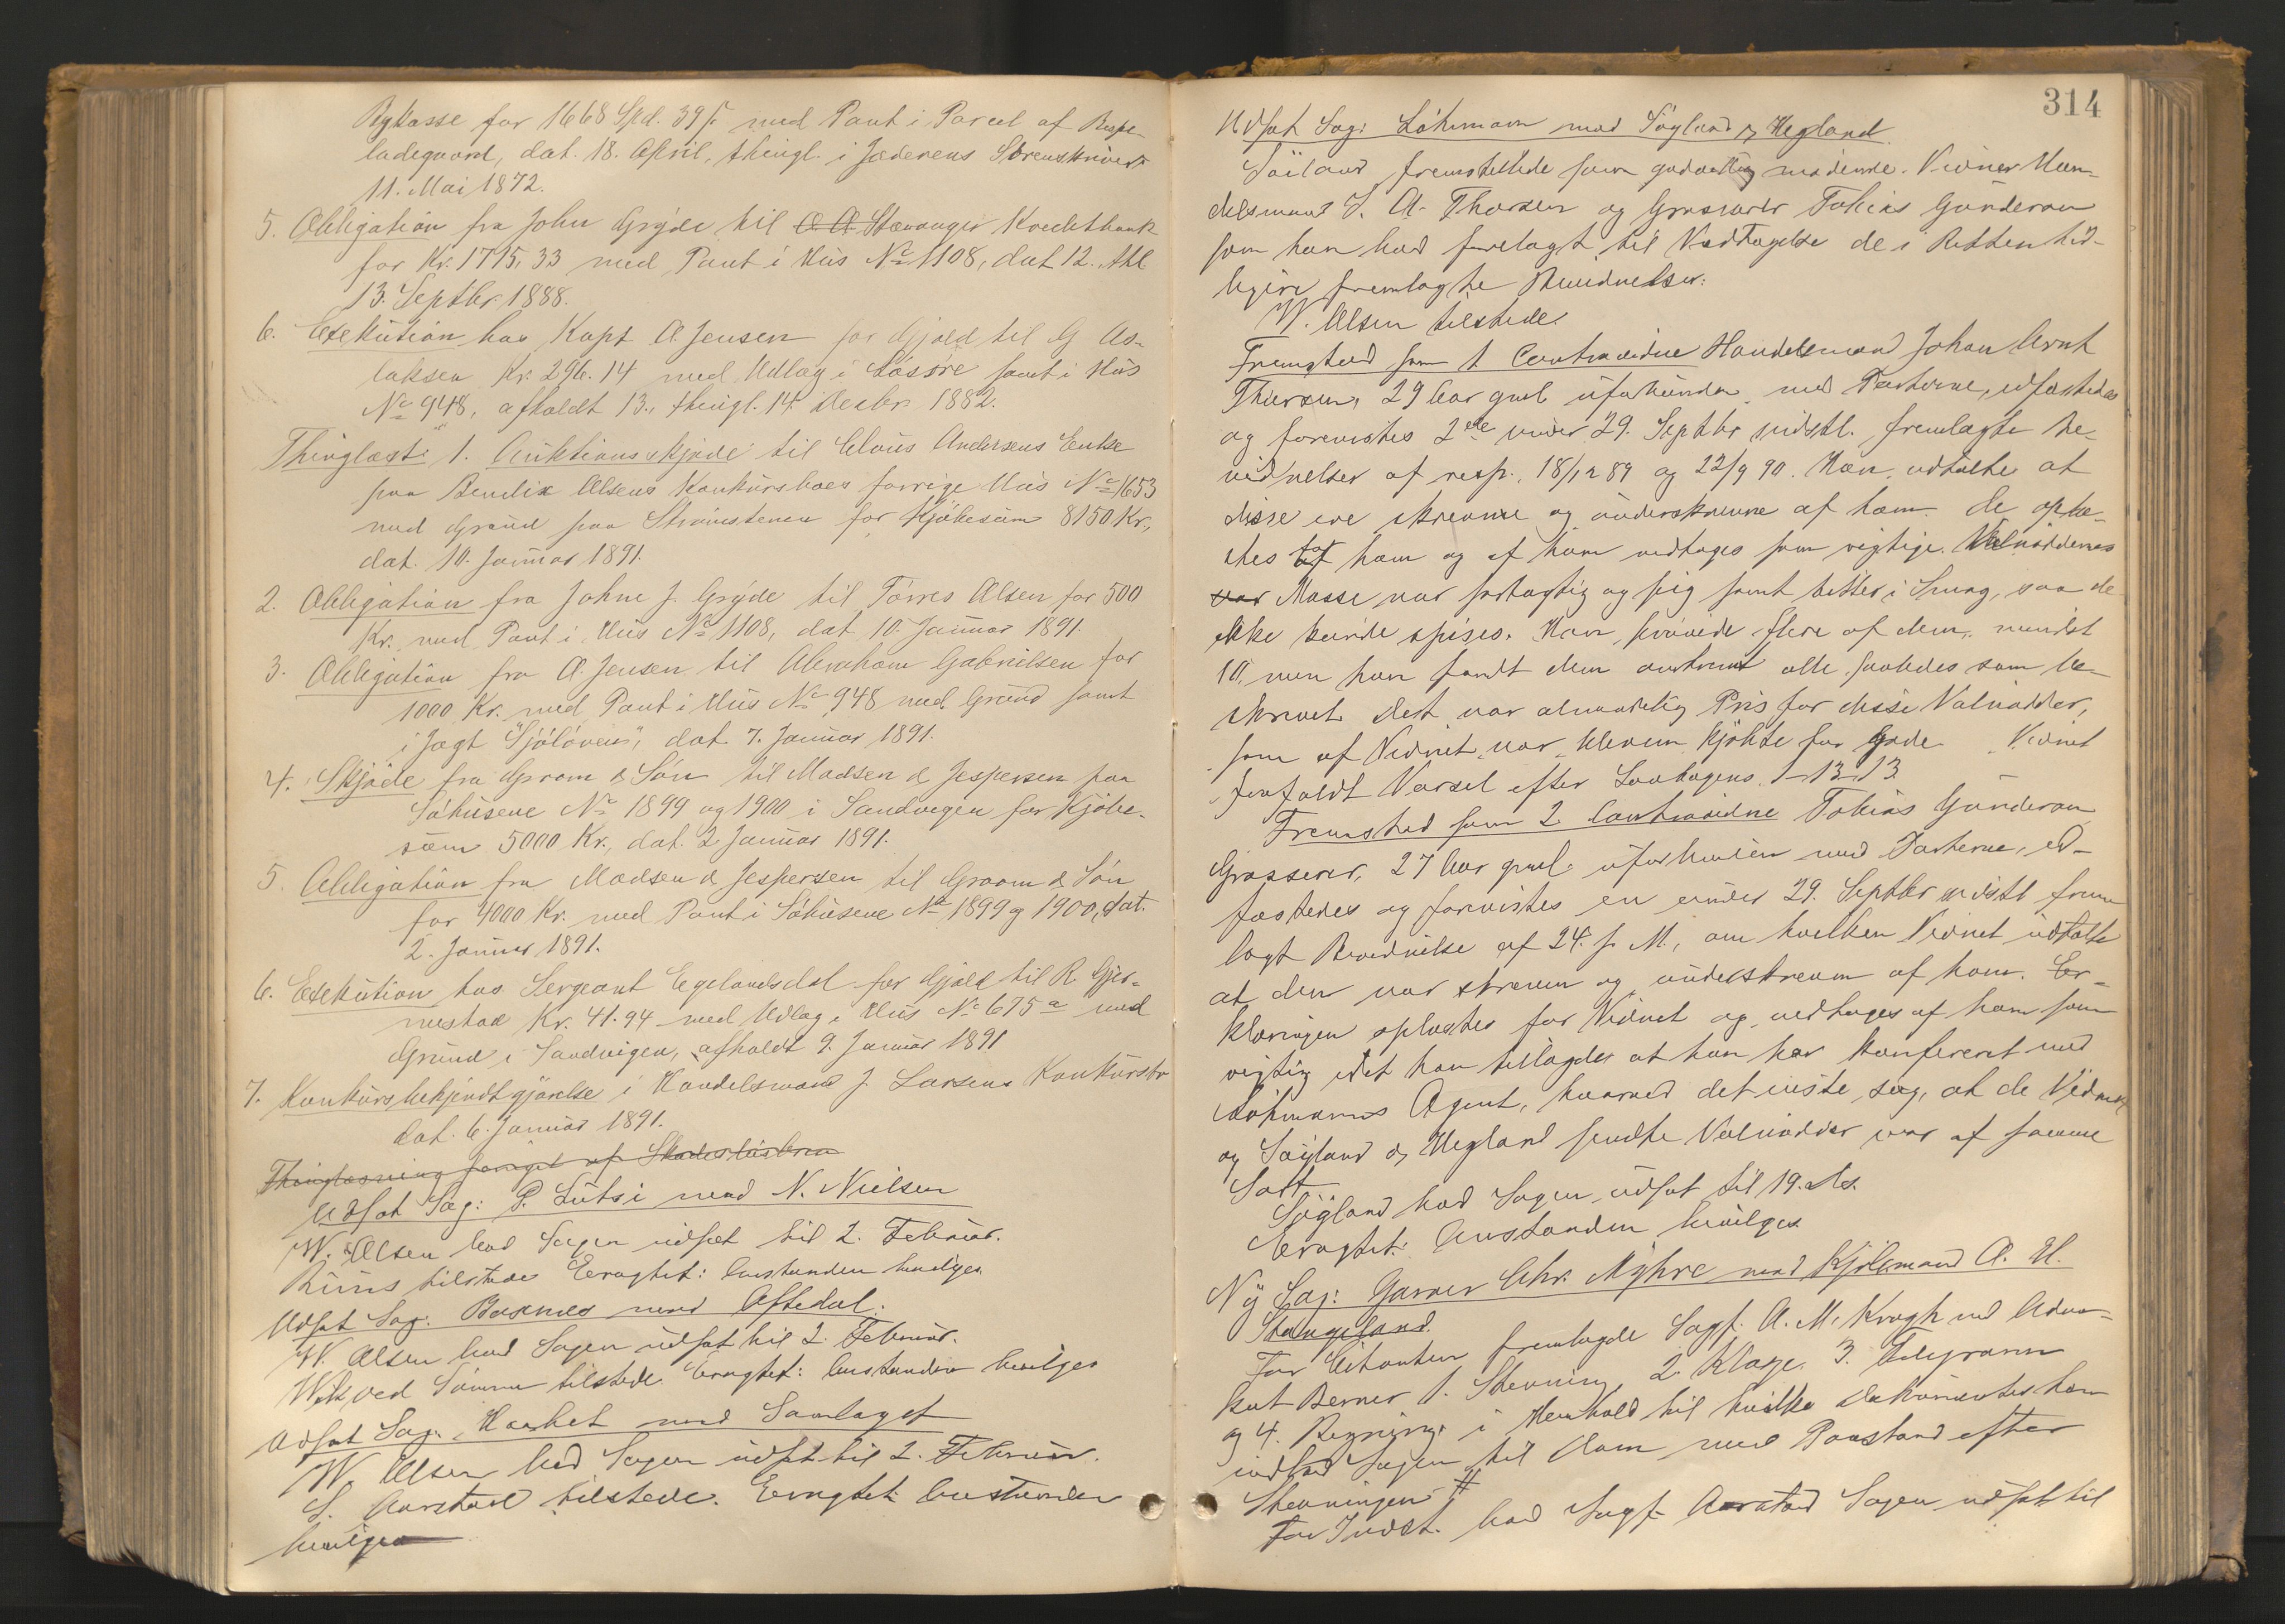 Bykasse for 1668 Spd. 39 ß med Pant i Parcel af Bispe-
ladegaard, dat. 18. April, thingl. i Jæderens Sorenskriveri
11. Mai 1872.
5. Obligation fra John Gryde til O A Stavanger Kreditbank
for Kr. 1715,33 med Pant i Hus No 1108, dat 12. thl
13. Septbr 1888.
6. Exekution hos Kapt A Jensen for Gjæld til G As-
laksen Kr. 296.14 med Udlæg i Løsøre samt i Hus
No 948, afholdt 13., thingl. 14 Decbr. 1882.
Thinglæst: 1. Auktionsskjøde til Claus Andersens Enke
paa Bendix Olsens Konkursboes forrige Hus No 1653
med Grund paa Strømstenen for Kjøbesum 8150 Kr.,
dat. 10. Januar 1891.
2. Obligation fra Johne J. Gryde til Tørres Olsen for 500
Kr. med Pant i Hus No 1108, dat 10. Januar 1891.
3. Obligation fra A. Jensen til Abraham Gabrielsen for
1000 Kr. med Pant i Hus No 948 med Grund samt
i Jagt "Sjøløven", dat. 7. Januar 1891.
4. Skjøde fra Gram & Søn til Madsen & Jespersen paa
Søhusene No 1899 og 1900 i Sandvigen for Kjøbe-
sum 5000 Kr., dat. 2 Januar 1891.
5. Obligation fra Madsen & Jespersen til Graam & Søn
for 4000 Kr. med Pant i Søhusene No 1899 og 1900, dat.
2. Januar 1891.
6. Exekution hos Sergeant Egelandsdal for Gjæld til R. Gjer-
mestad Kr. 41.94 med Udlæg i Hus No 675 a med
Grund i Sandvigen, afholdt 9. Januar 1891
7. Konkursbekjendtgjørelse i Handelsmand J. Larsens Konkursbo
dat. 6. Januar 1891.
Thinglæsning
Udsat Sag: P. Lütsi mod N. Nielsen
W. Olsen bad Sagen udsat til 2. Februar.
tilstede Eragtet: Anstanden bevilges
Udsat Sag: mod Aftedal.
W. Olsen bad Sagen udsat til 2. Februar.
ved Sømme tilstede. Eragtet: Anstanden bevilges
Udsat Sag. mod Samlaget
W. Olsen bad Sagen udsat til 2. Februar.
S. Aarstad tilstede. Eragtet: Anstanden
bevilges
314
Udsat Sag: Löhmann mod Søyland & Hegland.
Søiland fremstillede som godvillig mødende Vidner Han-
delsmand J. A. Thorsen og Grosserer Tobias Gunderson
som han bad forelagt til Vedtagelse de i Retten tid-
ligere fremlagte Bevidnelser.
W. Olsen tilstede.
Fremstod som 1 Contravidne Handelsmand Johan Arnt
Thorsen, 29 Aar gml. uforbunden med Parterne, edfæstedes
og forevistes 2de under 29. Septbr sidstl. fremlagte Be-
vidnelser af resp. 18/12 89 og 22/9 90. Han udtalte at
disse ere skrevne og underskrevne af ham. De oplæ-
stes for ham og af ham vedtoges som rigtige. Valnøddernes
var Masse var fortagtig og seig samt bitter i Smag, saa de
ikke kunde spises. Han prøvede flere af dem, mindst
10, men han fandt dem omtrent alle saaledes som be-
skrevet. Det var almindelig Pris for disse Valnødder,
som af Vidnet var bleven kjøbte for gode. Vidnet
frafaldt Varsel efter Lovbogens 1-13-13.
Fremstod som 2 Contravidne Tobias Gunderson
Grosserer, 27 Aar gml. uforbunden med Parterne, ed-
fæstedes og forevistes en under 29. Septbr sidstl frem-
lagt Bevidnelse af 24. s. M., om hvilken Vidnet udtalte
at den var skreven og underskreven af ham. Er-
klæringen oplæstes for Vidnet og vedtoges af ham som
rigtig idet han tillagde at han har konfereret med
Löhmanns Agent, hvorved det viste sig, at de Vidnet
og Søyland & Hegland sendte Valnødder var af samme
Sort
Søyland bad Sagen udsat til 19. ds.
Eragtet: Anstanden bevilges
Ny Sag: Garver Chr. Myhre mod Kjøbmand A. H.
Stangeland.
For Citanten fremlagde Sagf. A. M. Krogh ved Advo-
kat Berner 1. Stevning 2. Klage. 3. Telegram
og 4. Regning, i Henhold til hvilke Dokumenter han
indlod Sagen til Dom med Paastand efter
Stevningen #
For Indst. bad Sagf. Aarstad Sagen udsat til